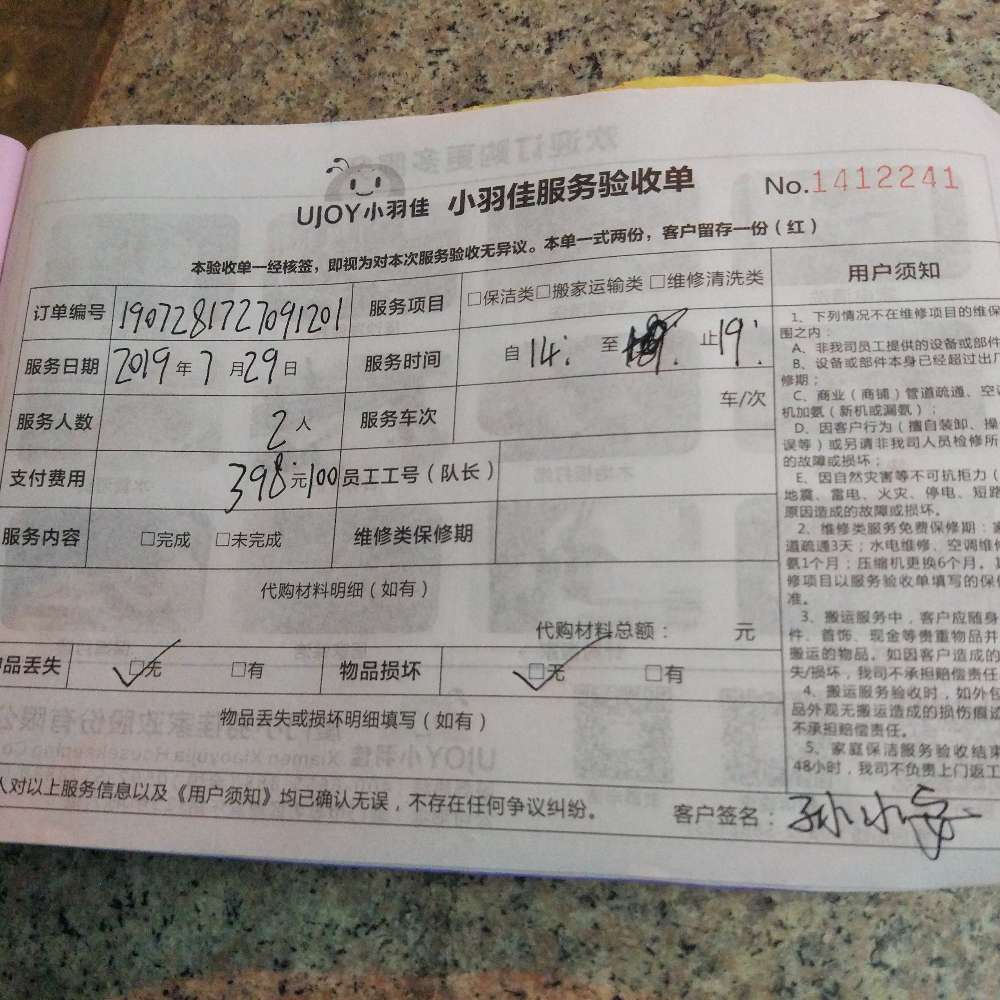 UJOY小羽佳 小羽佳服务验收单 No.1412241
本验收单一经核签，即视为对本次服务验收无异议。本单一式两份，客户留存一份（红）
订单编号 1907281727091201 服务项目 □保洁类□搬家运输类 □维修清洗类
服务日期 2019年7月29日 服务时间 自14: 至 止19:
服务人数 2人 服务车次 车/次
支付费用 398元100 员工工号（队长）
服务内容 □完成 □未完成 维修类保修期
代购材料明细（如有）
代购材料总额： 元
品丢失 □无 □有 物品损坏 □无 □有
物品丢失或损坏明细填写（如有）
人对以上服务信息以及《用户须知》均已确认无误，不存在任何争议纠纷。 客户签名：孙小
用户须知
1、下列情况不在维修项目的维保
围之内：
A、非我司员工提供的设备或部件
B、设备或部件本身已经超过出厂
修期；
C、商业（商铺）管道疏通、空调
机加氨（新机或漏氨）；
D、因客户行为（擅自装卸、操
误等）或另请非我司人员检修所
的故障或损坏；
E、因自然灾害等不可抗拒力（
地震、雷电、火灾、停电、短路
原因造成的故障或损坏。
2、维修类服务免费保修期：
道疏通3天；水电维修、空调维修
氨1个月；压缩机更换6个月。
修项目以服务验收单填写的保
准。
3、搬运服务中，客户应随身
件、首饰、现金等贵重物品并
搬运的物品。如因客户造成的
失/损坏，我司不承担赔偿责任
4、搬运服务验收时，如外包
品外观无搬运造成的损伤痕迹
不承担赔偿责任。
5、家庭保洁服务验收结束
48小时，我司不负责上门返工